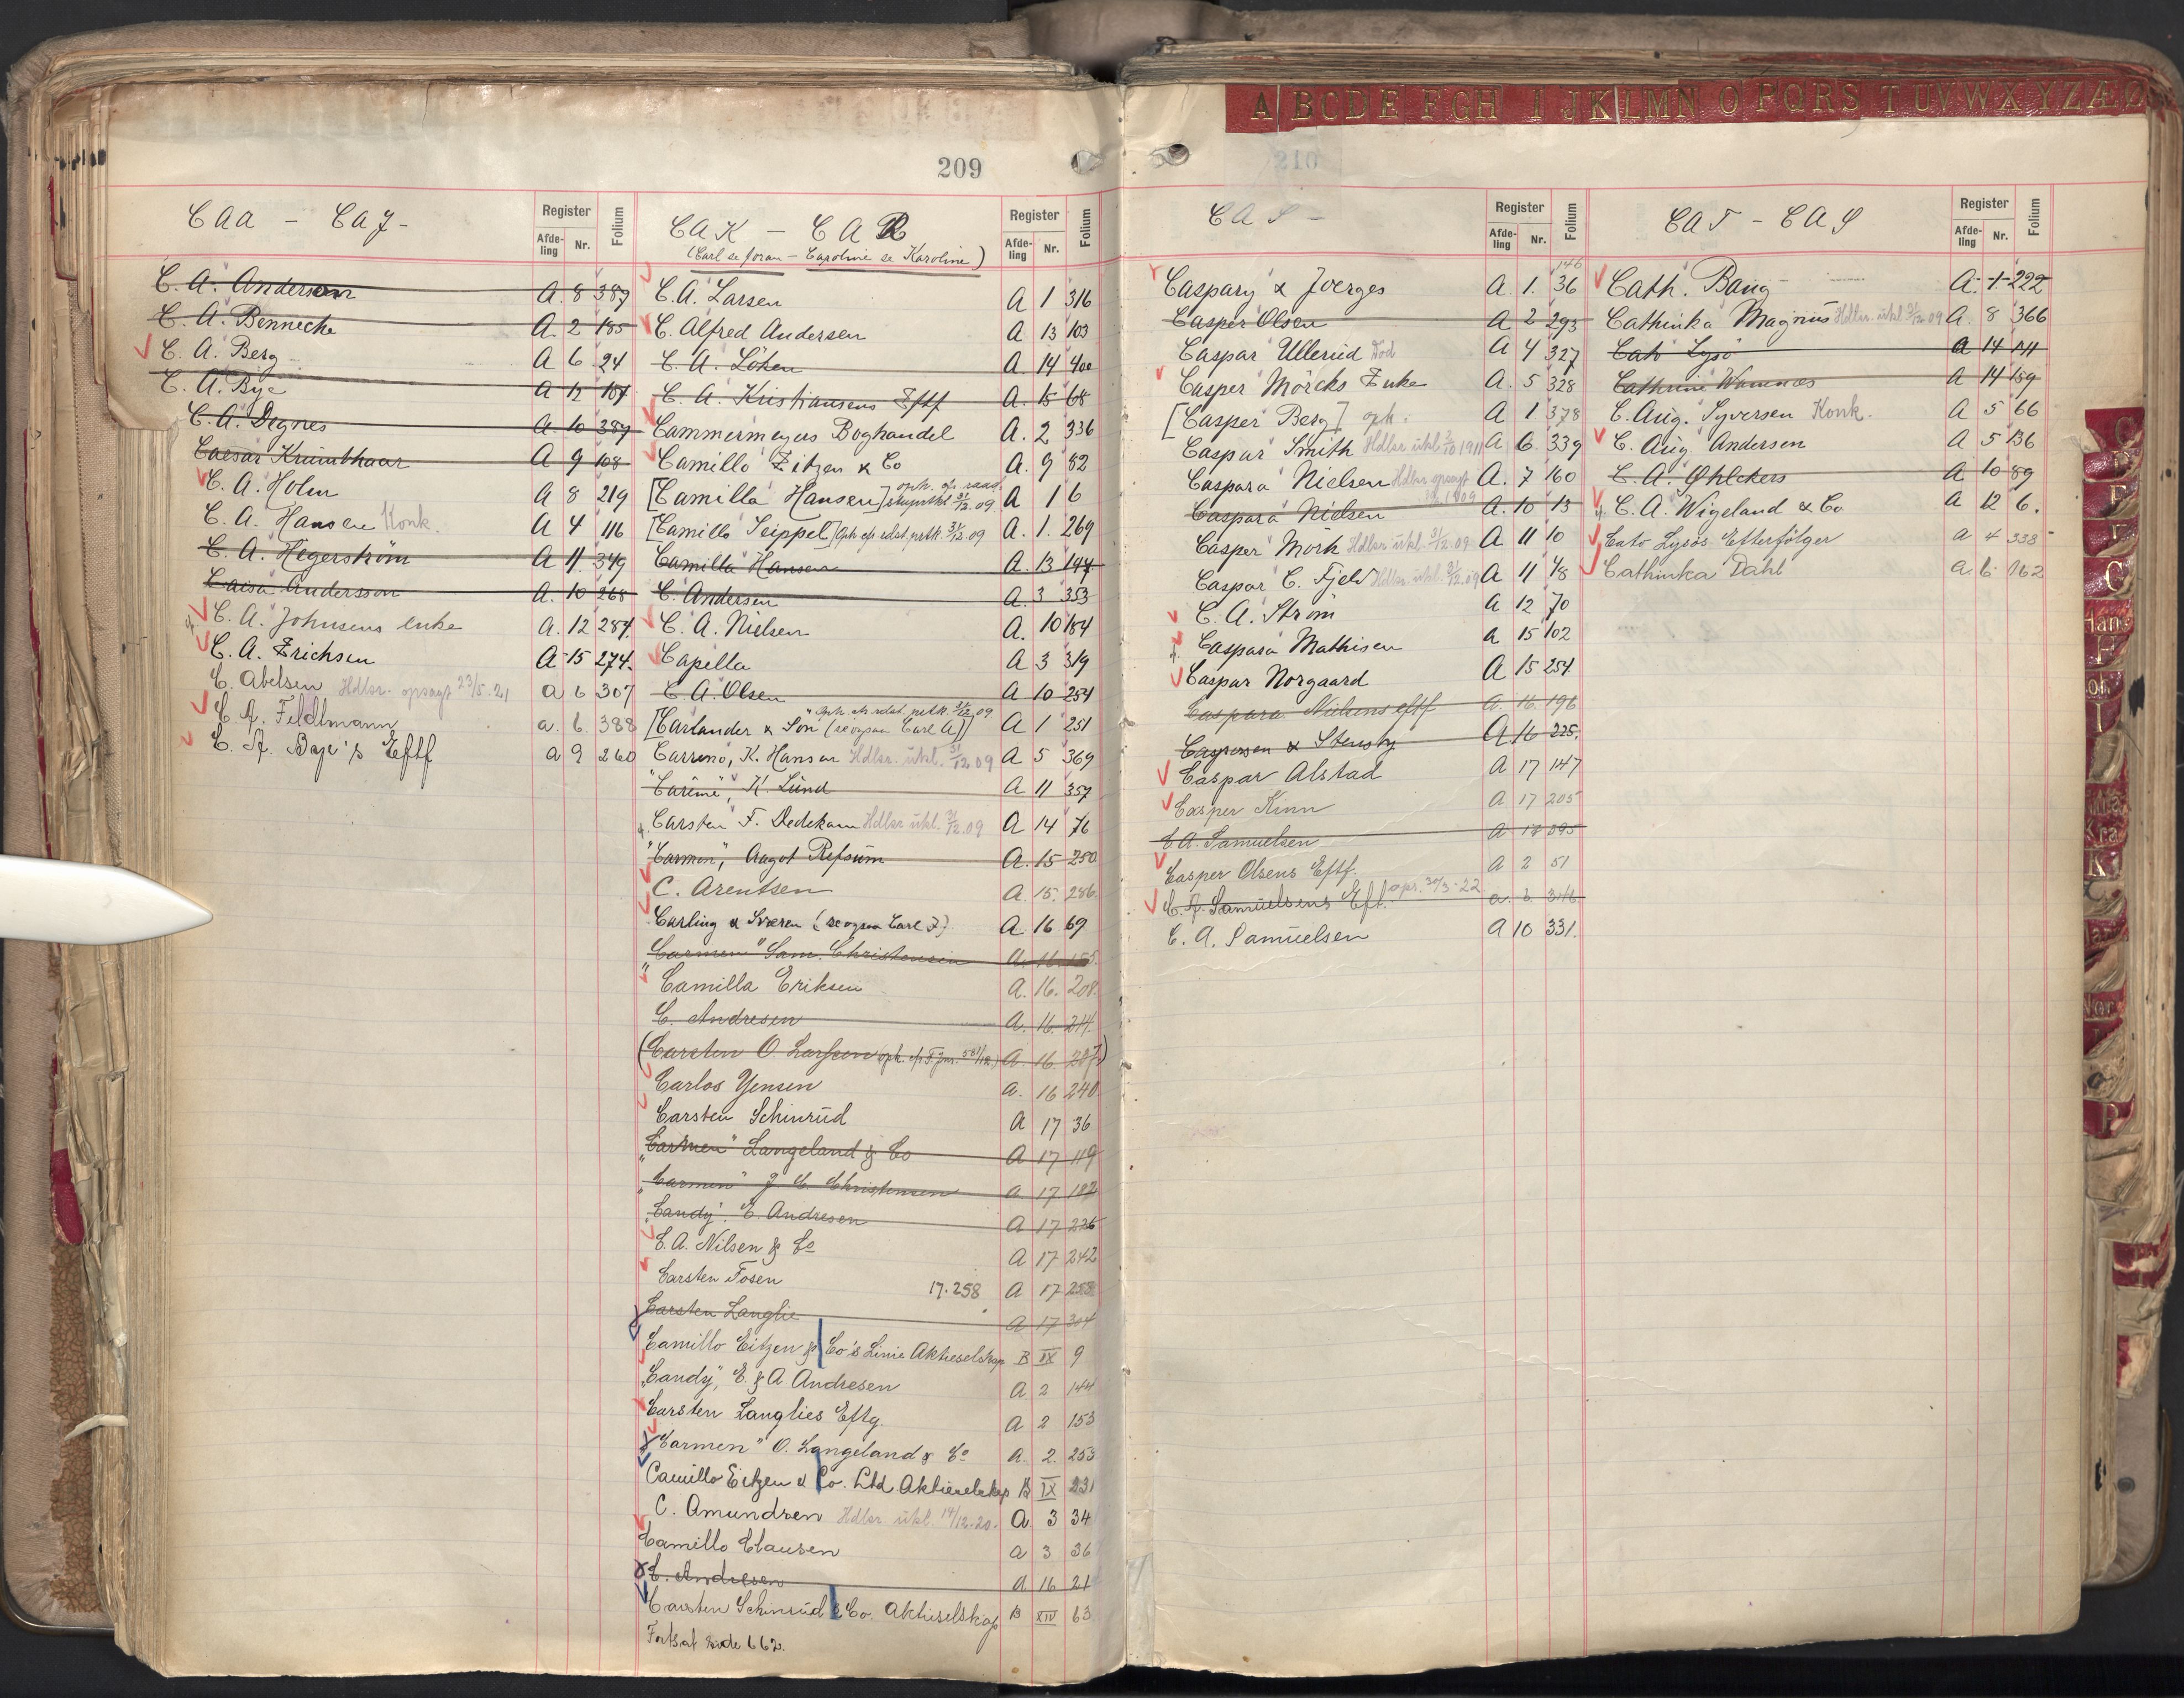 209
CAA - CAJ-
Register
Afde-
ling
Nr.
Folium
C. A. Andersen A. 8 389
C. A. Bennecke A. 2 185
C. A. Berg A 6 24
C. A. Bye A 12 107
C. A. Degnes A. 10 389
Caesar Krumthaar A 9 108
C. A. Holm A 8 219
C. A. Hansen Konk. A 4 116
C. A. Hegerström A 11. 349
Caisa Andersson A. 10 268
C. A. Johnsens enke A. 12 284.
C. A. Erichsen A 15 274.
C. Abelsen Hdlsr. opsagt 23/5-21 A 6 307
C. A. Feldtmann A. 6. 388
C. A. Bye's Eftf A 9 260
CAK - CAR
(Carl se foran - Caroline se Karoline)
Register
Afde-
ling
Nr.
Folium
C. A. Larsen A 1 316
C. Alfred Andersen A 13 103
C. A. Löken A. 14 400
C. A. Kristiansens Eftf A. 15 68
Cammermeyers Boghandel A. 2 336
Camillo Eitzen & Co A. 9 82
[Camilla Hansen] 31/12.09. A 1 6
[Camillo Seippel] Oph. 31/12.09 A. 1. 269
Camilla Hansen A. 13 144
C. Andersen A. 3 353
C. A. Nielsen A. 10 184
Capella A 3 319
C. A. Olsen A 10 254
[Carlander & Son (se ogsaa Carl A)] 31/12.09 A 1 251
Carreno, K. Hansen Hdlsr. utel. 31/12 09 A 5 369
"Careme", K. Lund A 11 357
Carsten F. Dedekam Hdlsr utel. 31/12.09 A 14 76
"Carmen", Aagot Refsum A. 15 250
C. Arentsen A. 15. 286.
Carling & Sveren (se ogsaa Carl F) A. 16 69
"Carmen" Sam. Christensen A. 16. 155.
Camilla Eriksen A. 16. 208.
C. Andresen A. 16. 214.
(Carsten O. Larssen A. 16. 287)
Carlos Jensen A. 16 240
Carsten Schinrud A 17 36
"Carmen" Langeland & Co A 17 119
"Carmen" J. C. Christensen A 17 182
"Candy". E. Andresen A 17 226
C. A. Nilsen & Co A 17 242
Carsten Fosen 17.258 A 17 258
Carsten Langlie A 17 304
Camillo Eitzen & Co's Linie Aktieselskap B IX 9
"Candy", E. & A. Andresen A 2 144
Carsten Langlies Eftg. A 2 153
"Carmen" O. Langeland & Co A. 2. 253
Camillo Eitzen & Co. Ltd Aktieselskap B IX 231
C. Amundsen Hdlsr. utel. 14/12-20. A. 3 34
Camillo Clausen A 3 36
C. Andresen A 16 21
Carsten Schinrud & Co. Aktieselskap B XIV 63
Fortsat side 662.
A B C D E F G H I J K L M N O P Q R S T U V W X Y Z Æ Ø
210
CAS -
Register
Afde-
ling
Nr.
Folium
146
Caspary & Joerges A. 1. 36
Casper Olsen A 2 293
Caspar Ullerud Död A 4 327
Casper Mörcks Enke A. 5 328
[Casper Berg] oph. A 1 378
Caspar Smith Hdlsr utel A 6. 339
Caspara Nielsen Hdlsr opsagt A. 7 160
Caspara Nielsen A. 10 13
Casper Mork Hdlsr utel. 31/12.09 A 11 10
Caspar C. Fjeld Hdlsr utel. 31/12.09 A 11 48
C. A. Ström A 12 70
Caspara Mathisen A 15 102
Caspar Norgaard A 15 254
Caspara Nielsens eftf A. 16. 196
Caspersen & Stensby A 16 225.
Caspar Alstad A 17 147
Casper Kinn A. 17 205
C. A. Samuelsen A 17 395
Casper Olsens Eftf. A 2 51
C. A. Samuelsens Eft. ops. 30/3-22 A. 6. 346
C. A. Samuelsen A 10 331.
CAT - CAÖ
Register
Afde-
ling
Nr.
Folium
Cath. Bang A. 1 222
Cathinka Magnus Hdlsr. utel 31/12 09 A. 8 366
Cato Lysö A 14 141
Cathrine Wamnæs A 14 159
C. Aug. Syversen Konk. A 5 66
C. Aug. Andersen A 5 136
C. A. Ohlckers A 10 89
C. A. Wigeland & Co A 12 6.
Cato Lysös Efterfölger A 4 338
Cathinka Dahl A. 6. 162